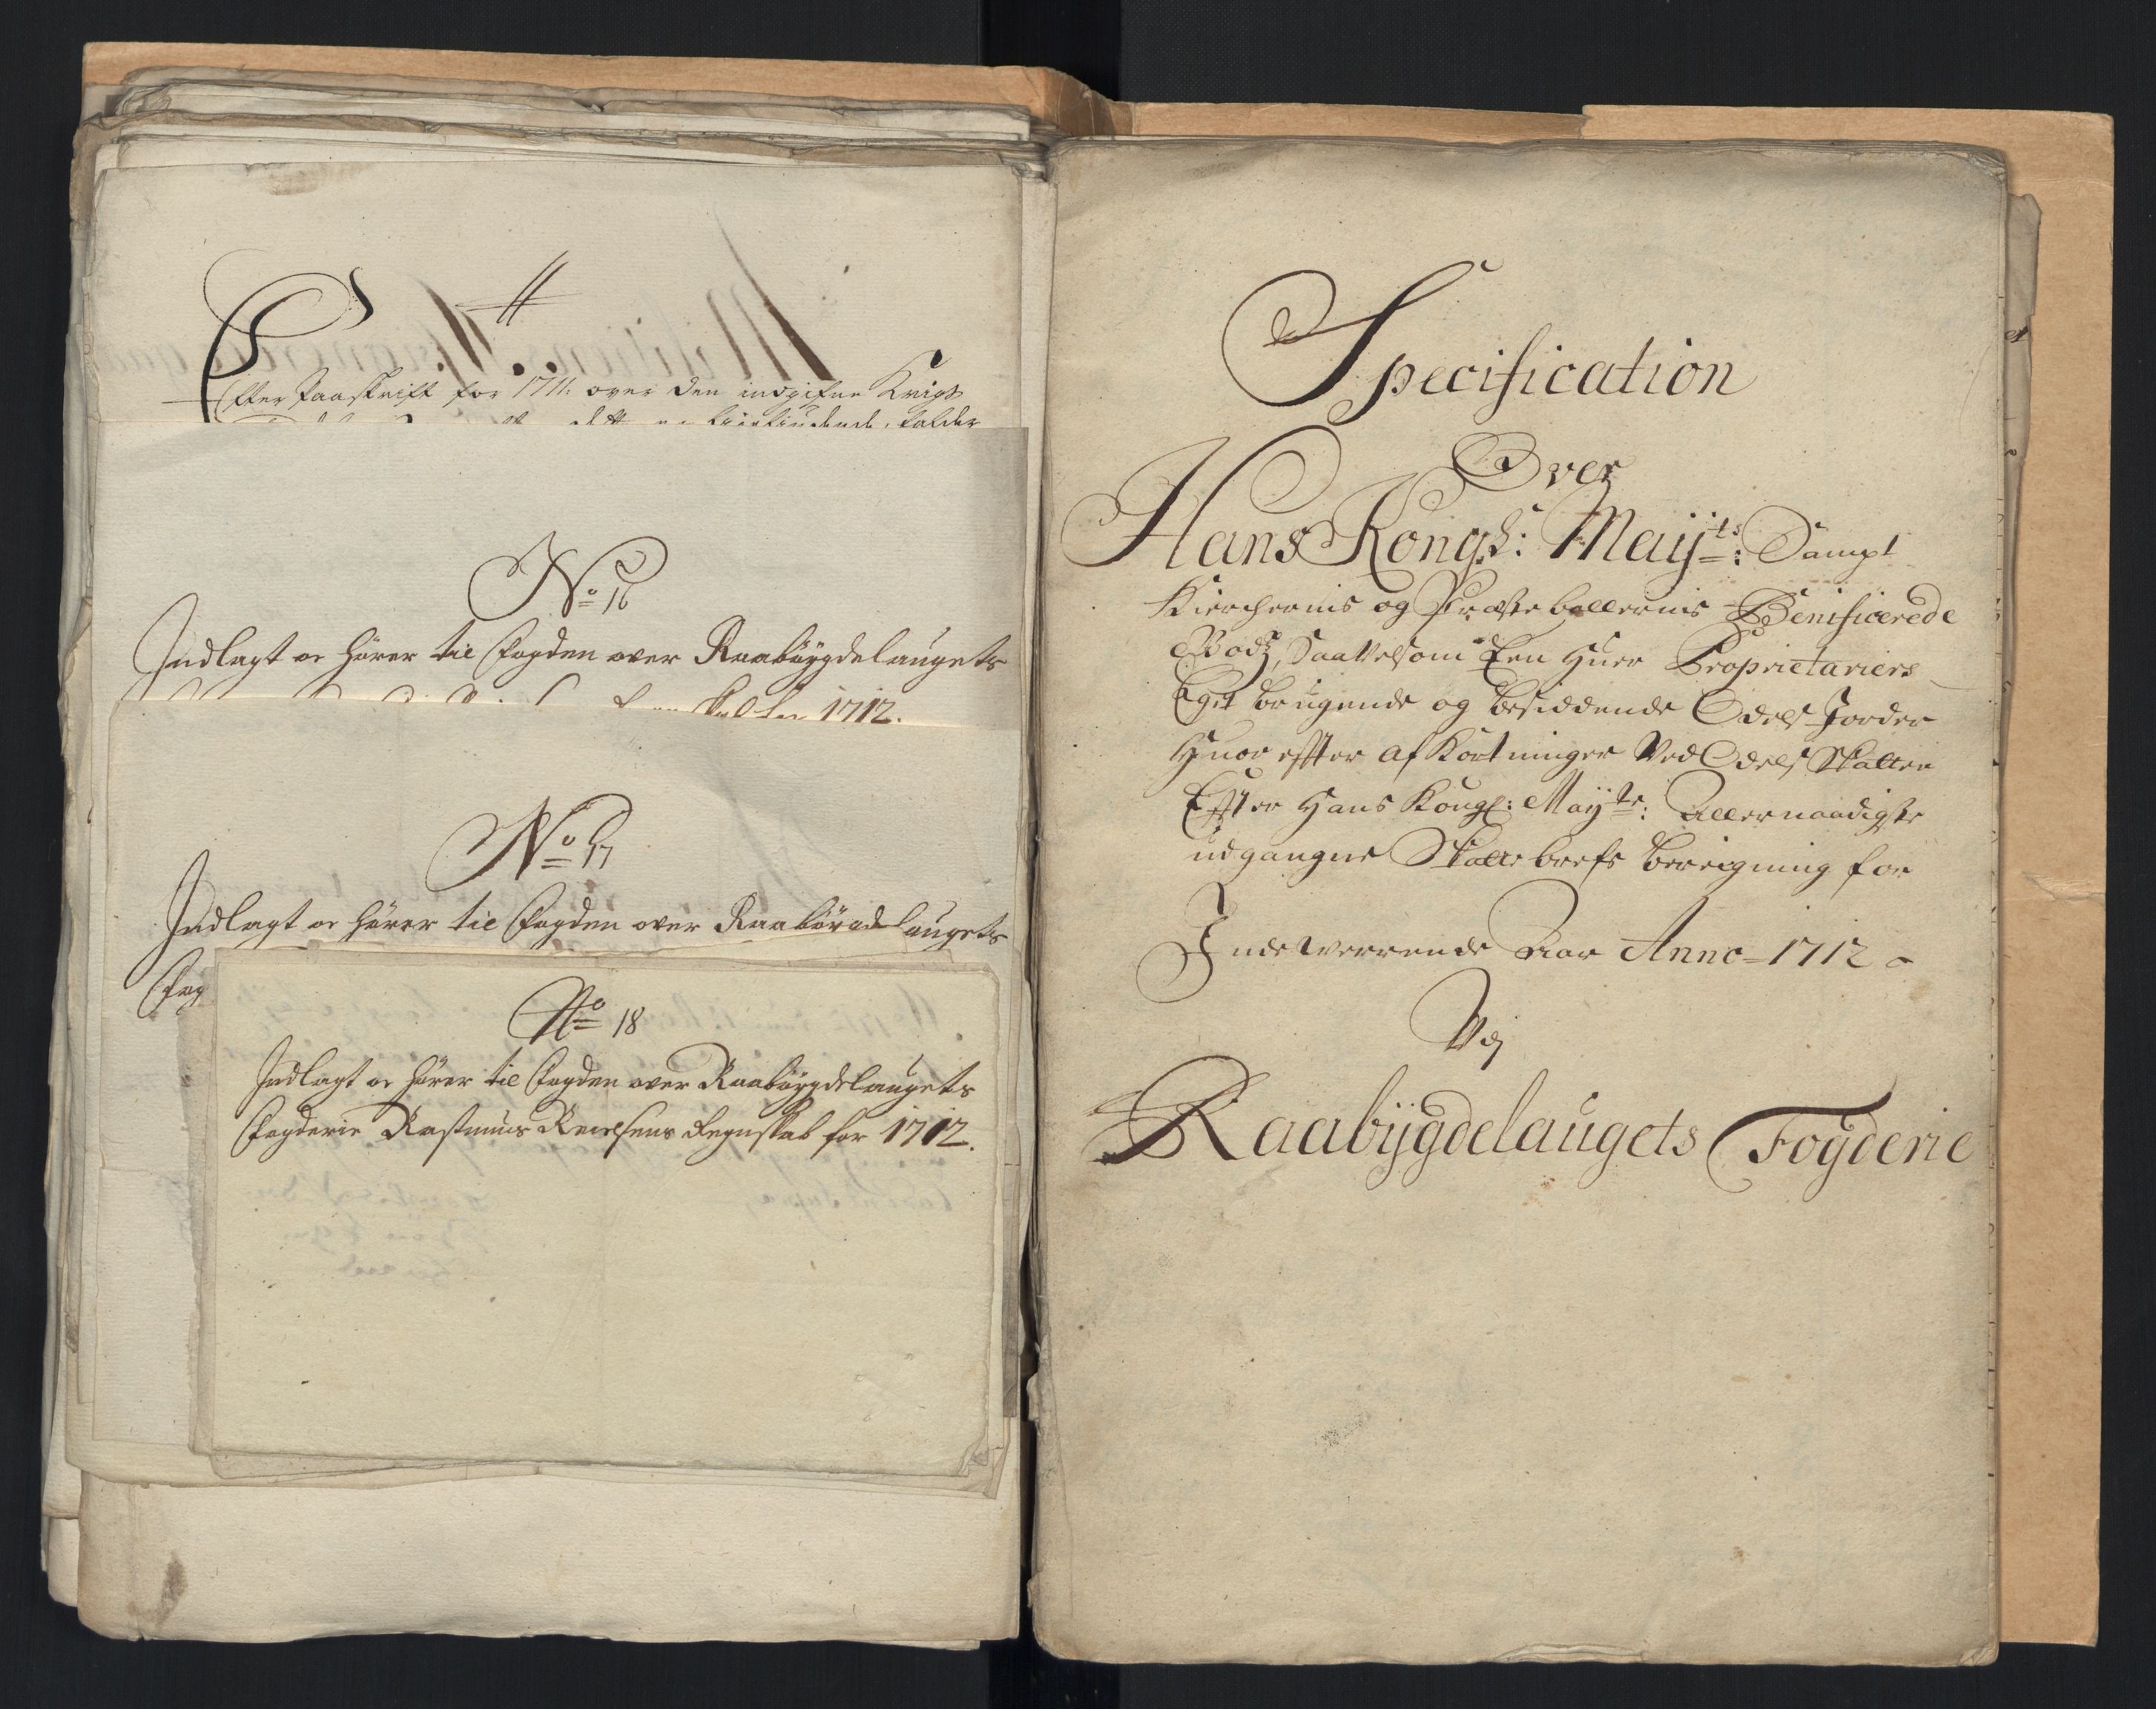 Efter Paaskrift for 1711. over den indgifne Krigs
No 16
Indlagt er hører til Fogden over Raabøygdelaugets
1712.
No 17
Indlagt er hører til Fogden over Raabøigdelaugets
Fog
No 18
Indlagt er hører til Fogden over Raabøygdelaugets
Fogderie Rasmus Regnskab for 1712.
Specification
Over
Hans Kongl: Maijts: Sampt
Kierchernis og Præstebollernis Benificerede
Godz, Saavelsom Een Huer Proprietariers
Eget brugende og besiddende Odels Jorder
Huor effter afkortninger Ved Odels Skatten
Effter Hans Kongl: Maijts: Allernaadigste
udgangne Skattebrefs bereigning for
Indeværrende Aar Anno 1712
Udj
Raabijgdelaugets Fogderie